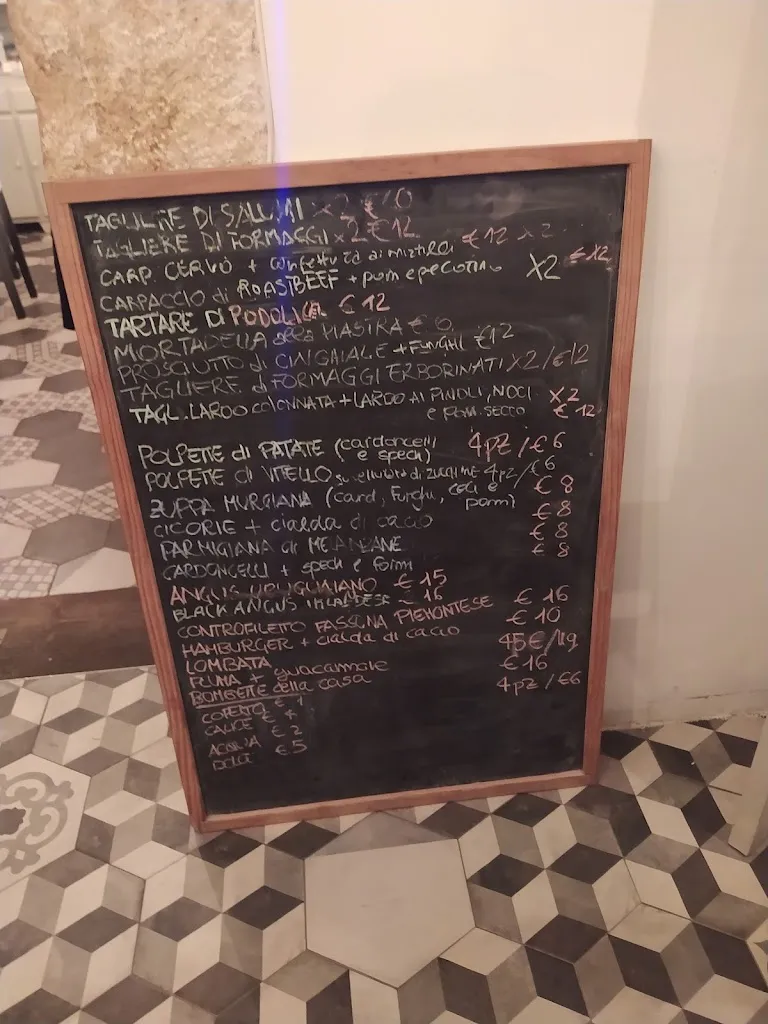 TAGLIERE DI SALUMI x2 €10
TAGLIERE DI FORMAGGI x2 €12
CARP. CERVO + confettura ai mirtilli €12 x2
CARPACCIO di ROASTBEEF + pom e pecorino X2
TARTARE DI PODOLICA € 12
MORTADELLA alla PIASTRA € 6
PROSCIUTTO di CINGHIALE + FUNGHI €12
TAGLIERE di FORMAGGI ERBORINATI X2/€12
TAGL. LARDO COLONNATA + LARDO AI PINOLI, NOCI X2
e POM. SECCO € 12
POLPETTE di PATATE (cardoncelli e speck) 4pz/€6
POLPETE di VITELLO su vellutata di ZUCCHINE 4pz/€6
ZUPPA MURGIANA (card, Funghi, ceci e pomi) € 8
CICORIE + cialda di cacio € 8
PARMIGIANA di MELANZANE € 8
CARDONCELLI + speck e form € 8
ANGUS URUGUAIANO € 15
BLACK ANGUS IRLANDESE 16
CONTROFILETTO FASSONA PIEMONTESE € 16
HAMBURGER + cialda di cacio € 10
LOMBATA 45€/kg
PLUMA + guacamole € 16
BOMBETTE della casa 4pz/€6
COPERTO € 1
CALICE € 4
ACQUA € 2
DOLCI € 5